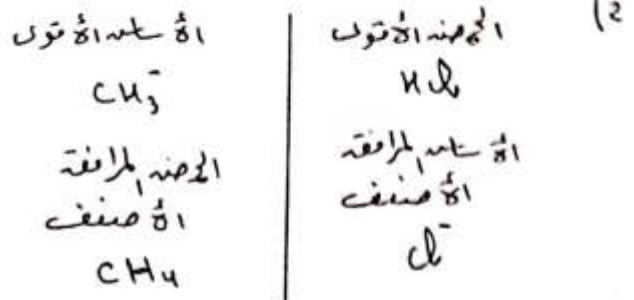 2)
الحمض الأقوى
HCl
الأساس المرافق
الأضعف
Cl⁻
الأساس الأقوى
CH₃⁻
الحمض المرافق
الأضعف
CH₄